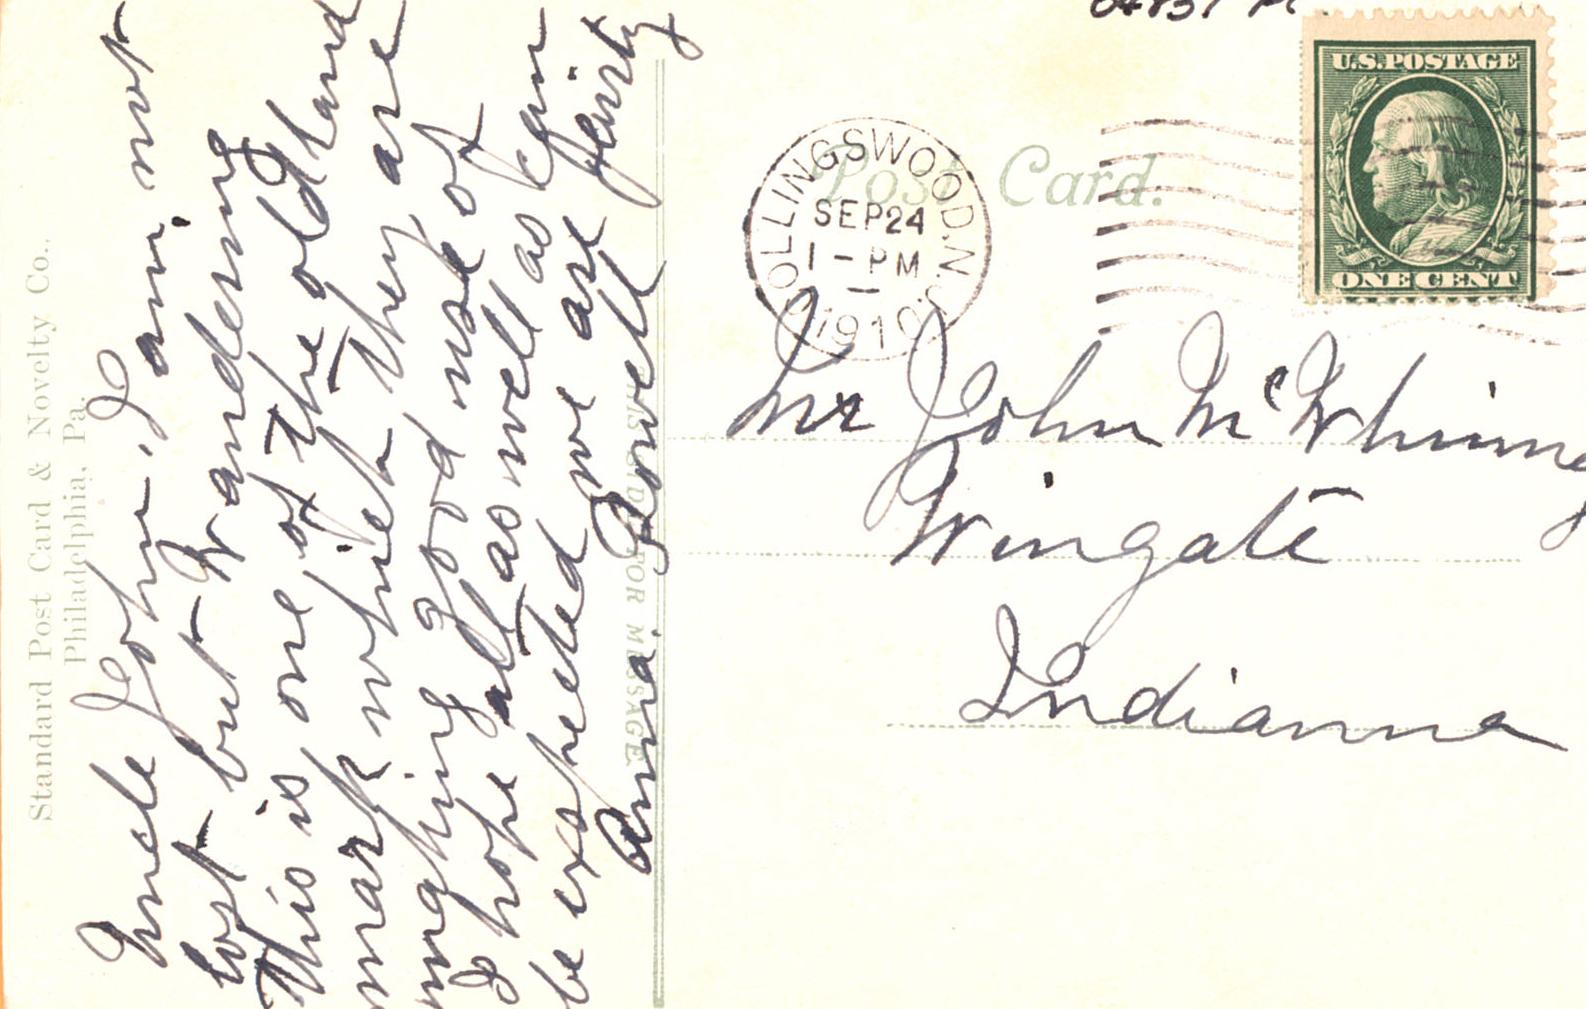 Standard Post Card & Novelty Co.,
Philadelphia, Pa.
Uncle John, I am not
lost but Wandering
This is one of the old land
mark which they are
making good use of
I hope all as well as can
be exspected we are
Anna Powell
THIS SIDE FOR MESSAGE
Post Card.
COLLINGSWOOD, N.J.
SEP 24
1 - PM
1910
U.S. POSTAGE
ONE CENT
Mr John McWhinn
Wingate
Indianna